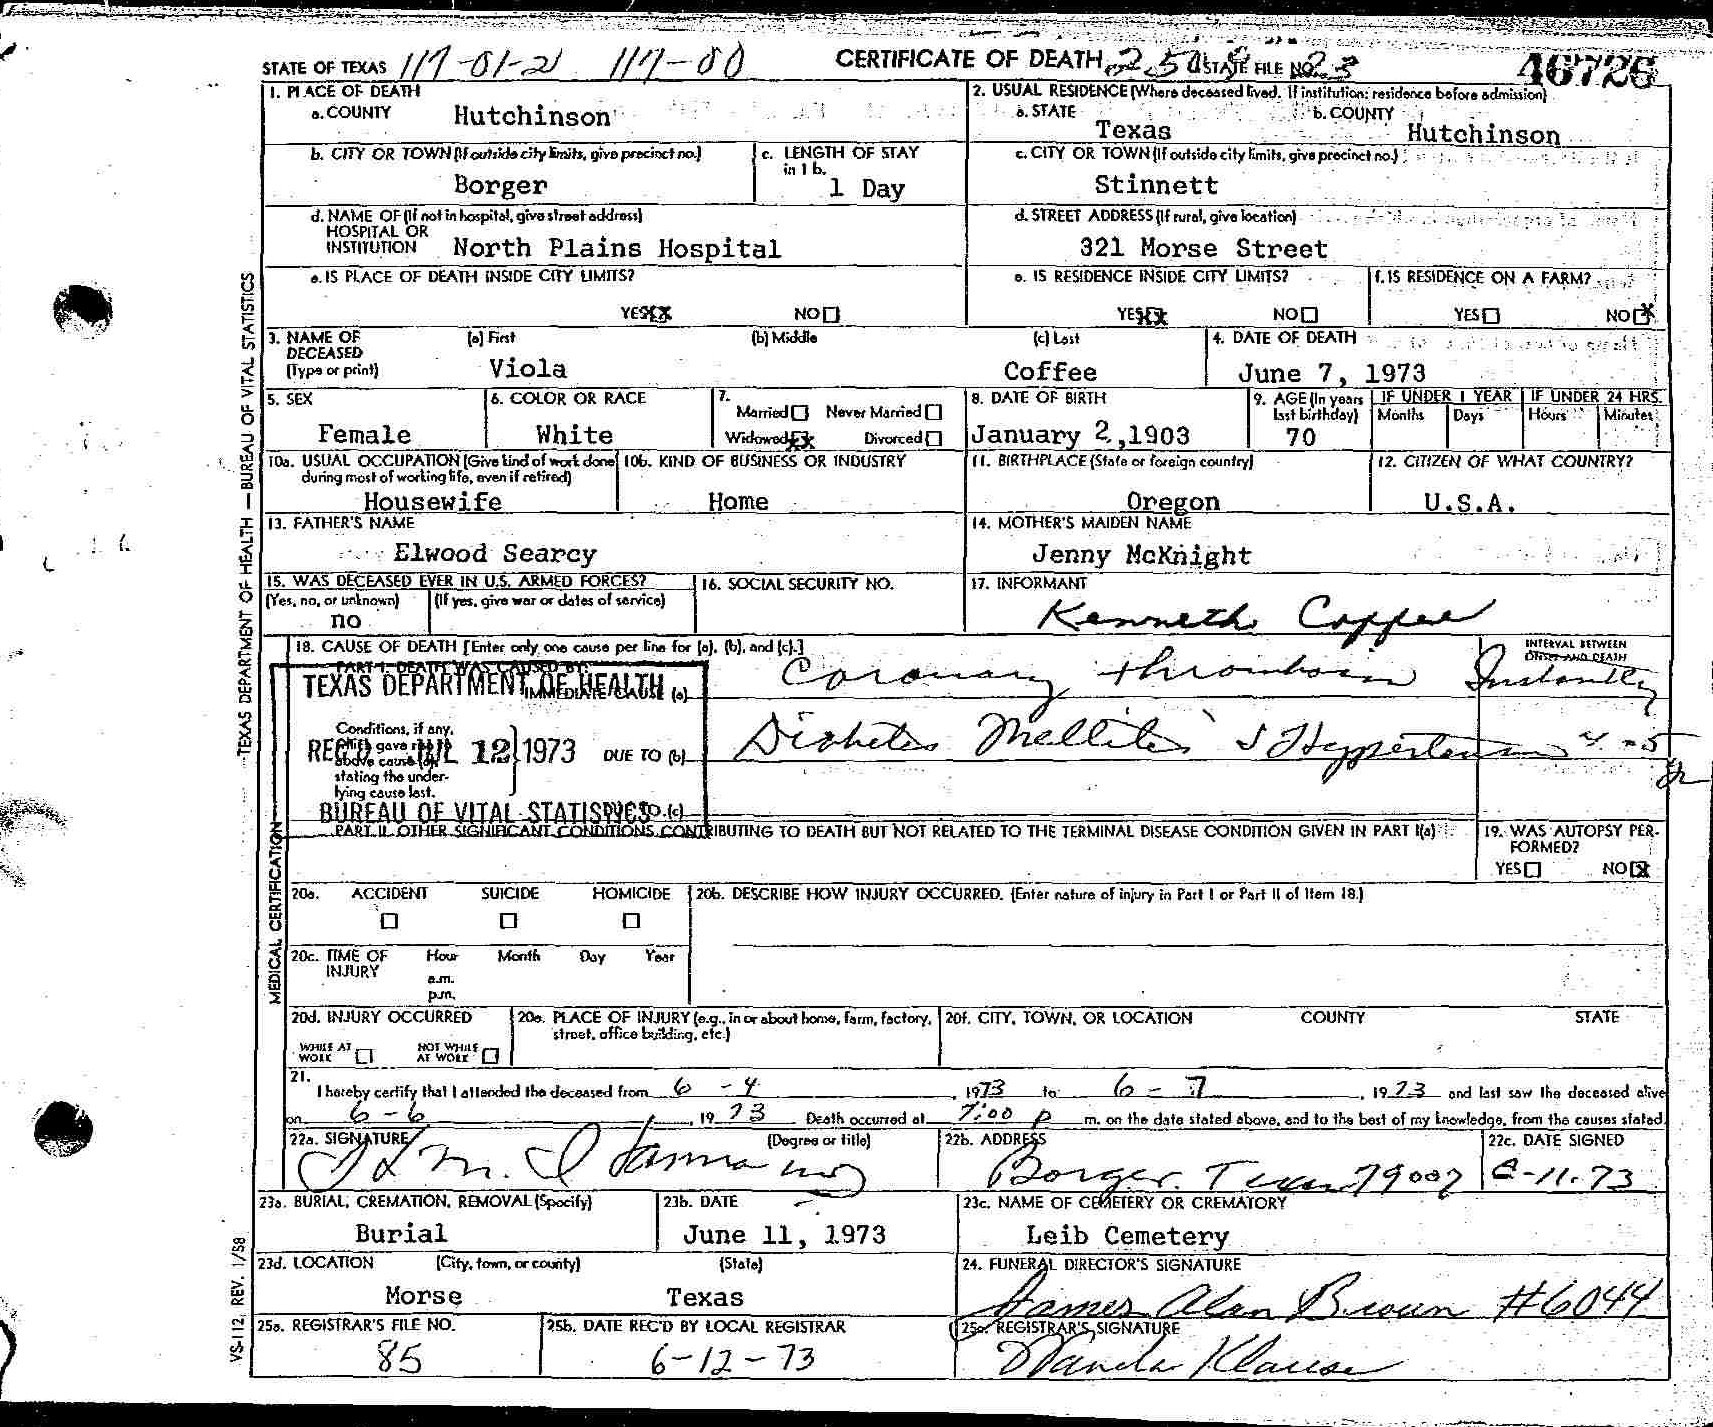 STATE OF TEXAS 117-01-21 117-00 CERTIFICATE OF DEATH STATE FILE NO. 46726
1. PLACE OF DEATH
a. COUNTY Hutchinson
2. USUAL RESIDENCE (Where deceased lived. If institution: residence before admission)
a. STATE Texas
b. COUNTY Hutchinson
b. CITY OR TOWN (If outside city limits, give precinct no.)
Borger
c. LENGTH OF STAY in 1 b.
1 Day
c. CITY OR TOWN (If outside city limits, give precinct no.)
Stinnett
d. NAME OF (If not in hospital, give street address)
HOSPITAL OR
INSTITUTION North Plains Hospital
d. STREET ADDRESS (If rural, give location)
321 Morse Street
e. IS PLACE OF DEATH INSIDE CITY LIMITS?
YES XX NO
e. IS RESIDENCE INSIDE CITY LIMITS?
YES XX NO
f. IS RESIDENCE ON A FARM?
YES NO X
3. NAME OF DECEASED (Type or print)
(a) First (b) Middle (c) Last
Viola Coffee
4. DATE OF DEATH
June 7, 1973
5. SEX
Female
6. COLOR OR RACE
White
7.
Married Never Married
Widowed XX Divorced
8. DATE OF BIRTH
January 2, 1903
9. AGE (In years last birthday)
70
IF UNDER 1 YEAR
Months Days
IF UNDER 24 HRS.
Hours Minutes
10a. USUAL OCCUPATION (Give kind of work done during most of working life, even if retired)
Housewife
10b. KIND OF BUSINESS OR INDUSTRY
Home
11. BIRTHPLACE (State or foreign country)
Oregon
12. CITIZEN OF WHAT COUNTRY?
U.S.A.
13. FATHER'S NAME
Elwood Searcy
14. MOTHER'S MAIDEN NAME
Jenny McKnight
15. WAS DECEASED EVER IN U.S. ARMED FORCES?
(Yes, no, or unknown) (If yes, give war or dates of service)
no
16. SOCIAL SECURITY NO.
17. INFORMANT
Kenneth Coffee
18. CAUSE OF DEATH [Enter only one cause per line for (a), (b), and (c).]
INTERVAL BETWEEN
ONSET AND DEATH
PART I. DEATH WAS CAUSED BY:
IMMEDIATE CAUSE (a) Coronary thrombosis Instantly
TEXAS DEPARTMENT OF HEALTH
Conditions, if any,
which gave rise to
above cause (a),
stating the under-
lying cause last.
DUE TO (b) Diabetes Mellitus Hypertension
REC'D JUL 12 1973
DUE TO (c)
BUREAU OF VITAL STATISTICS
PART II. OTHER SIGNIFICANT CONDITIONS CONTRIBUTING TO DEATH BUT NOT RELATED TO THE TERMINAL DISEASE CONDITION GIVEN IN PART I(a)
19. WAS AUTOPSY PERFORMED?
YES NO X
20a. ACCIDENT SUICIDE HOMICIDE
20b. DESCRIBE HOW INJURY OCCURRED. (Enter nature of injury in Part I or Part II of Item 18.)
20c. TIME OF INJURY
Hour Month Day Year
a.m.
p.m.
20d. INJURY OCCURRED
WHILE AT WORK NOT WHILE AT WORK
20e. PLACE OF INJURY (e.g., in or about home, farm, factory, street, office building, etc.)
20f. CITY, TOWN, OR LOCATION COUNTY STATE
21.
I hereby certify that I attended the deceased from 6-4, 1973 to 6-7, 1973 and last saw the deceased alive
on 6-6, 1973 Death occurred at 7:00 p m. on the date stated above, and to the best of my knowledge, from the causes stated.
22a. SIGNATURE (Degree or title)
22b. ADDRESS
Borger, Texas 79007
22c. DATE SIGNED
6-11-73
23a. BURIAL, CREMATION, REMOVAL (Specify)
Burial
23b. DATE
June 11, 1973
23c. NAME OF CEMETERY OR CREMATORY
Leib Cemetery
23d. LOCATION (City, town, or county) (State)
Morse Texas
24. FUNERAL DIRECTOR'S SIGNATURE
James Alan Brown #6044
25a. REGISTRAR'S FILE NO.
85
25b. DATE REC'D BY LOCAL REGISTRAR
6-12-73
25c. REGISTRAR'S SIGNATURE
Wanda Klause
TEXAS DEPARTMENT OF HEALTH — BUREAU OF VITAL STATISTICS
MEDICAL CERTIFICATION
VS-112, REV. 1/58